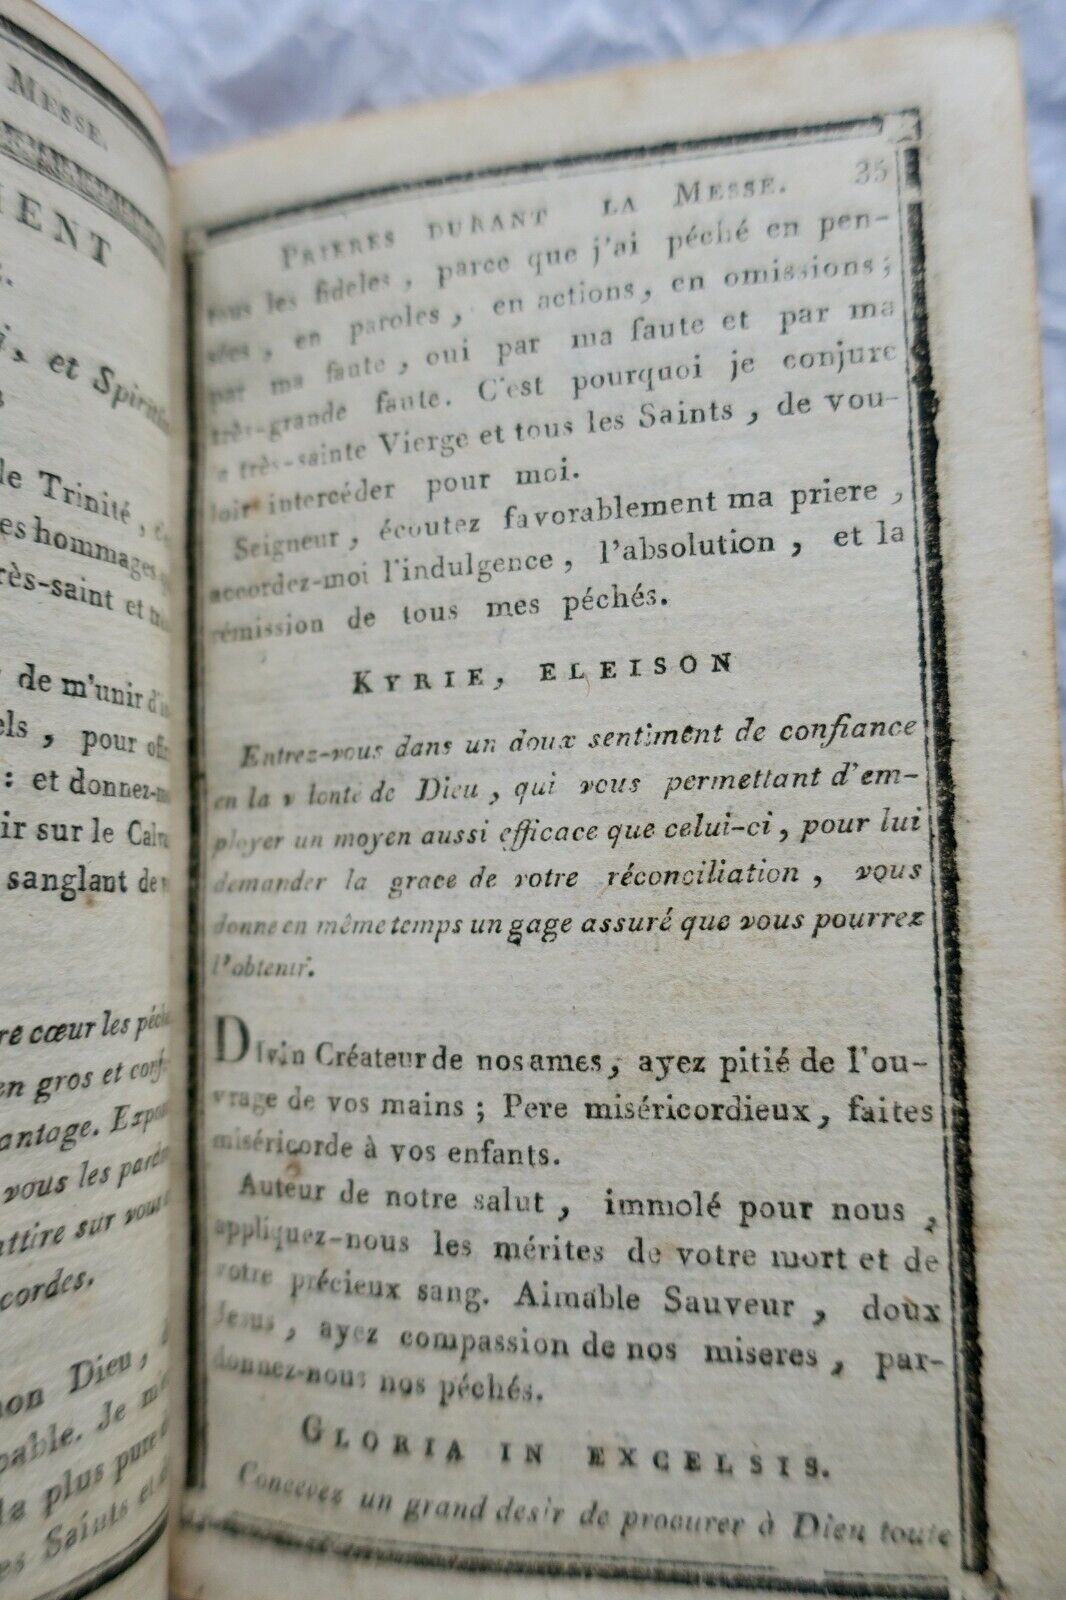 MESSE.
MENT
et Spirit
le Trinité,
es hommages
rès-saint et
de m'unir
els, pour
: et donnez-
ir sur le Calv
sanglant de
re cœur les péch
en gros et conf
antage. Expo
vous les pard
attire sur vou
cordes.
mon Dieu,
pable. Je m
la plus pure
es Saints et
PRIERES DURANT LA MESSE. 35
tous les fideles, parce que j'ai péché en pen-
sées, en paroles, en actions, en omissions;
par ma faute, oui par ma faute et par ma
très-grande faute. C'est pourquoi je conjure
la très-sainte Vierge et tous les Saints, de vou-
loir intercéder pour moi.
Seigneur, écoutez favorablement ma priere,
accordez-moi l'indulgence, l'absolution, et la
rémission de tous mes péchés.
KYRIE, ELEISON
Entrez-vous dans un doux sentiment de confiance
en la v lonté de Dieu, qui vous permettant d'em-
ployer un moyen aussi efficace que celui-ci, pour lui
demander la grace de votre réconciliation, vous
donne en même temps un gage assuré que vous pourrez
l'obtenir.
DIvin Créateur de nos ames, ayez pitié de l'ou-
vrage de vos mains; Pere miséricordieux, faites
miséricorde à vos enfants.
Auteur de notre salut, immolé pour nous,
appliquez-nous les mérites de votre mort et de
votre précieux sang. Aimable Sauveur, doux
Jesus, ayez compassion de nos miseres, par-
donnez-nous nos péchés.
GLORIA IN EXCELSIS.
Concevez un grand desir de procurer à Dieu toute